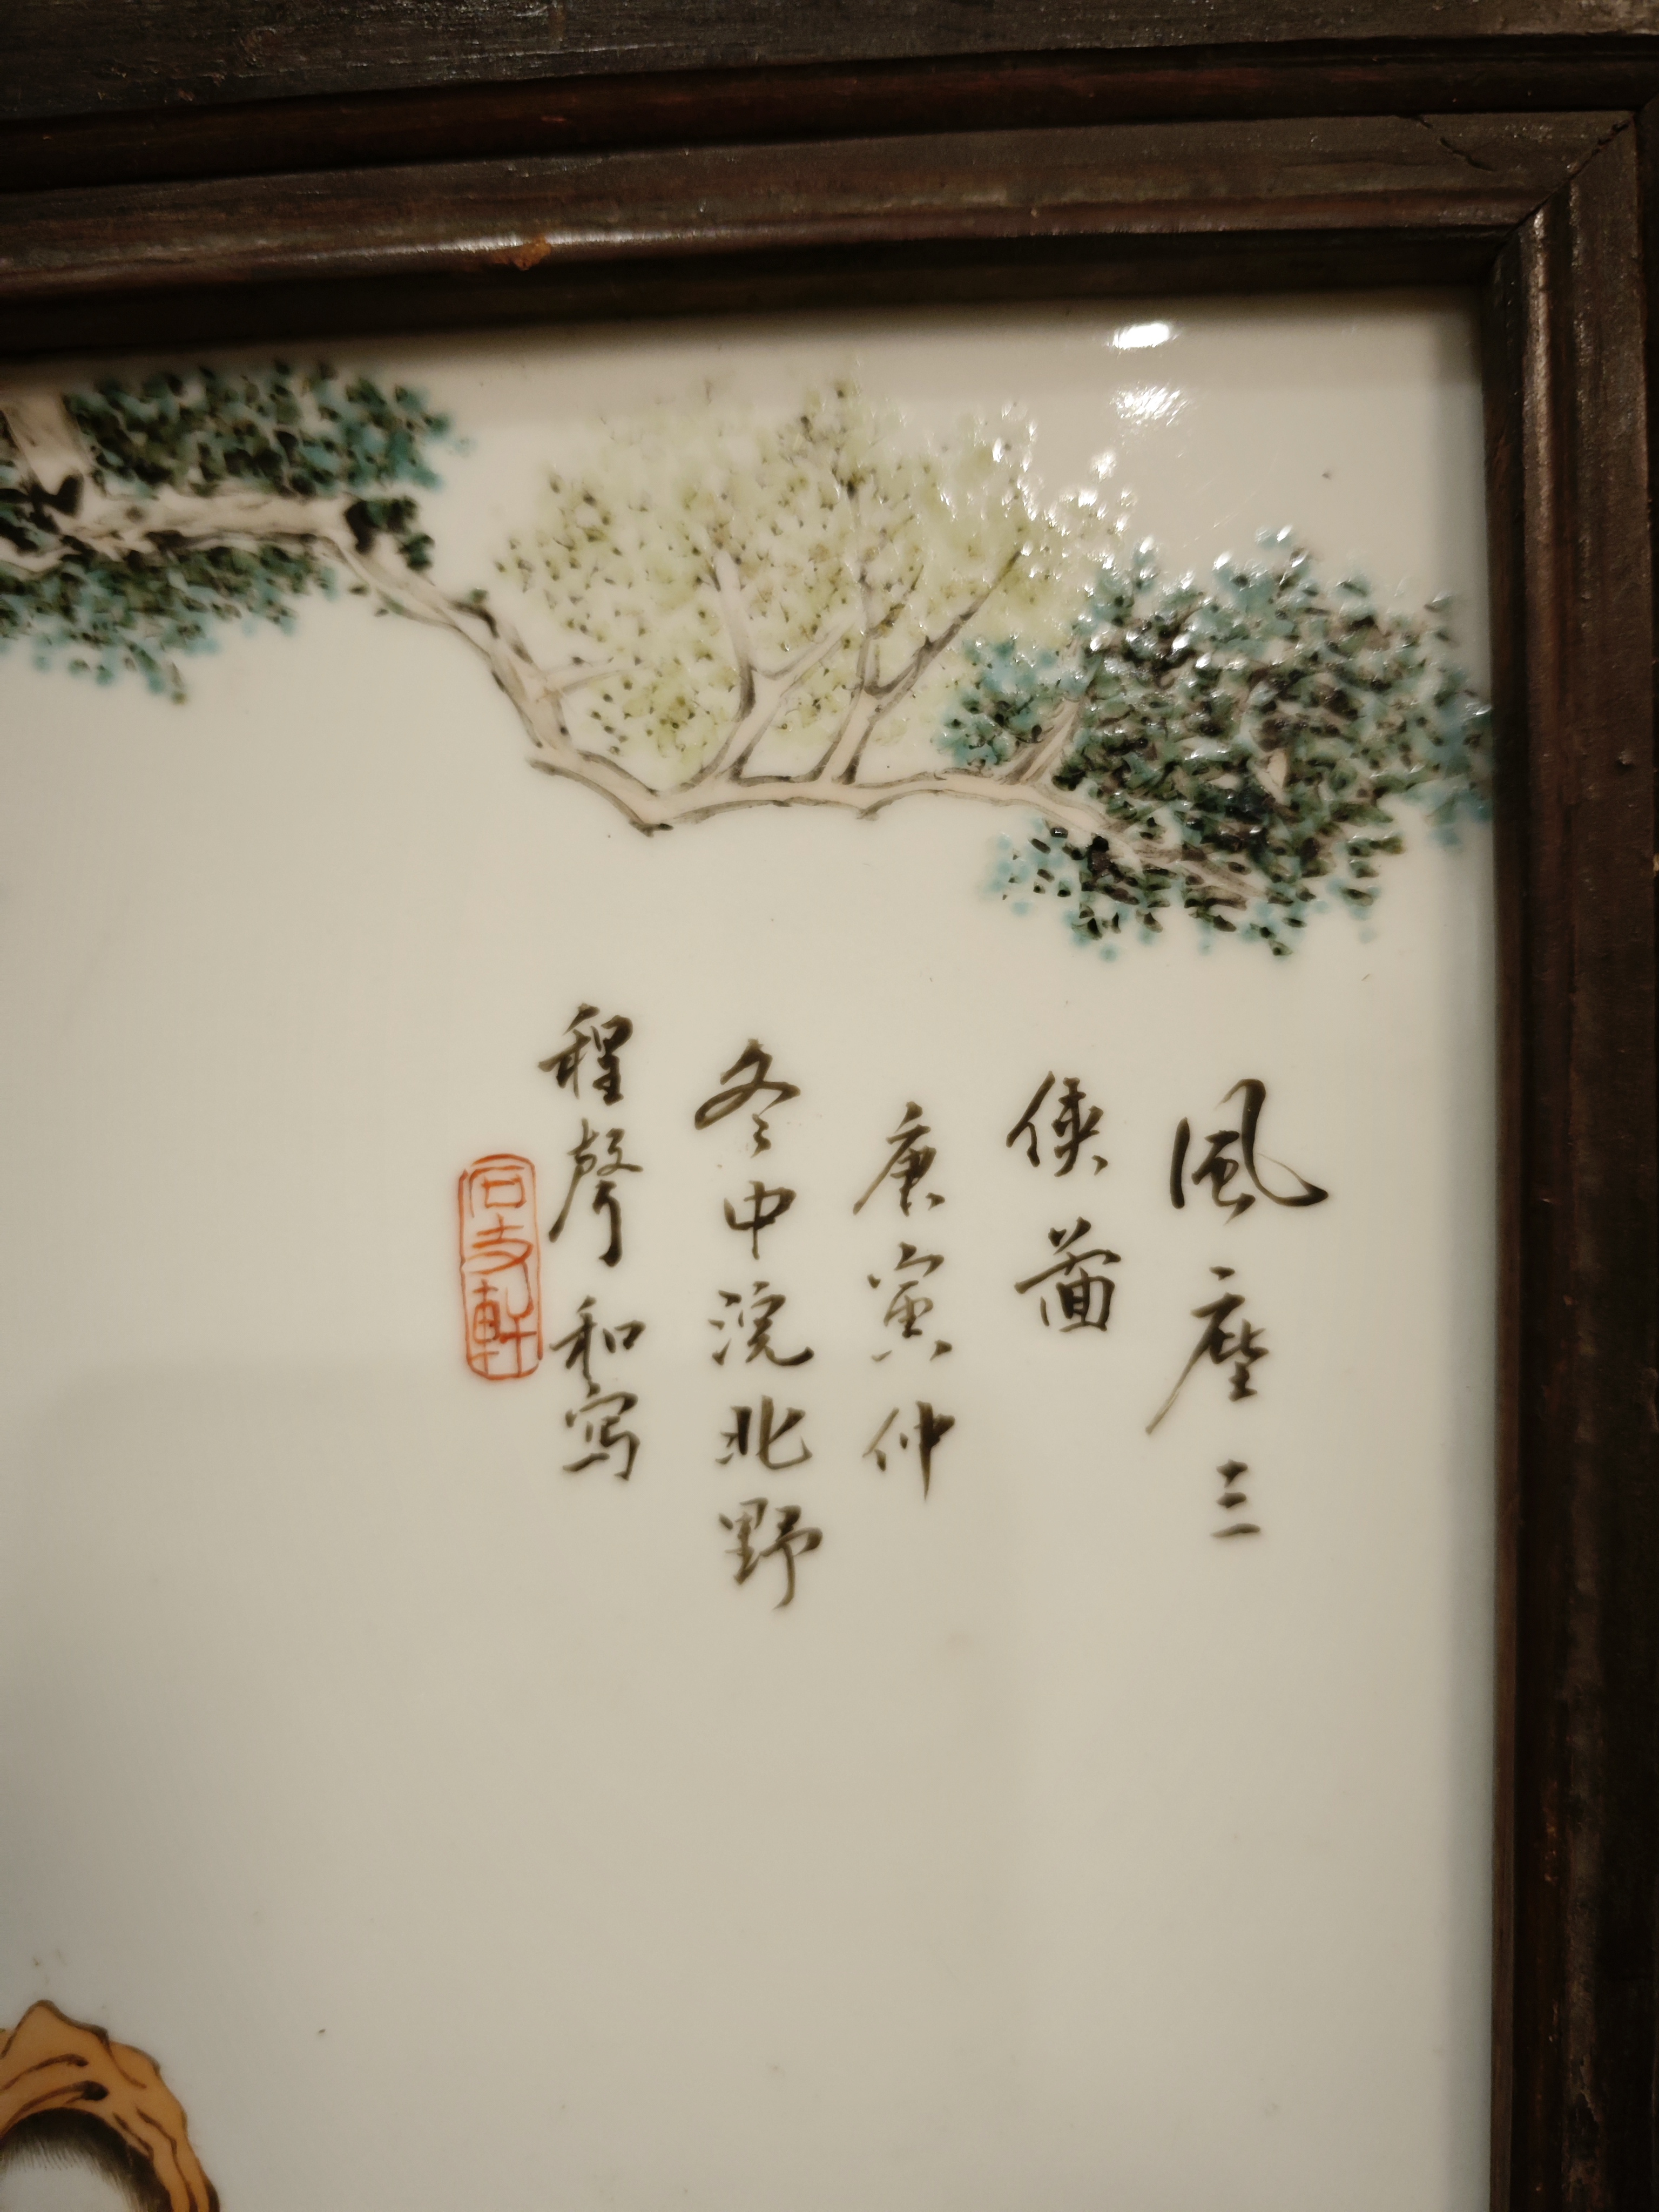 風塵三
俠啚
庚寅仲
冬中浣北野
程聲和写
石支軒